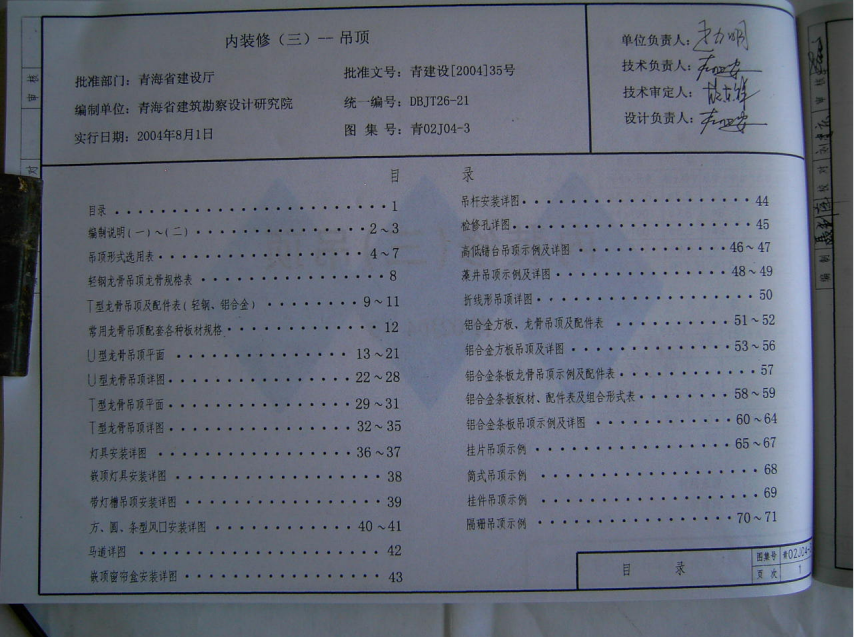 内装修（三）--吊顶
批准部门：青海省建设厅
编制单位：青海省建筑勘察设计研究院
实行日期：2004年8月1日
批准文号：青建设[2004]35号
统一编号：DBJT26-21
图 集 号：青02J04-3
单位负责人：
技术负责人：
技术审定人：
设计负责人：
目 录
目录 1
编制说明(一)~(二) 2~3
吊顶形式选用表 4~7
轻钢龙骨吊顶龙骨规格表 8
T型龙骨吊顶及配件表(轻钢、铝合金) 9~11
常用龙骨吊顶配套各种板材规格 12
U型龙骨吊顶平面 13~21
U型龙骨吊顶详图 22~28
T型龙骨吊顶平面 29~31
T型龙骨吊顶详图 32~35
灯具安装详图 36~37
嵌顶灯具安装详图 38
带灯槽吊顶安装详图 39
方、圆、条型风口安装详图 40~41
马道详图 42
嵌顶窗帘盒安装详图 43
吊杆安装详图 44
检修孔详图 45
高低错台吊顶示例及详图 46~47
藻井吊顶示例及详图 48~49
折线形吊顶详图 50
铝合金方板、龙骨吊顶及配件表 51~52
铝合金方板吊顶及详图 53~56
铝合金条板龙骨吊顶示例及配件表 57
铝合金条板板材、配件表及组合形式表 58~59
铝合金条板吊顶示例及详图 60~64
挂片吊顶示例 65~67
筒式吊顶示例 68
挂件吊顶示例 69
隔栅吊顶示例 70~71
目 录
图集号 青02J04-
页 次 1
审 核
对
审 核
校 对
编 制